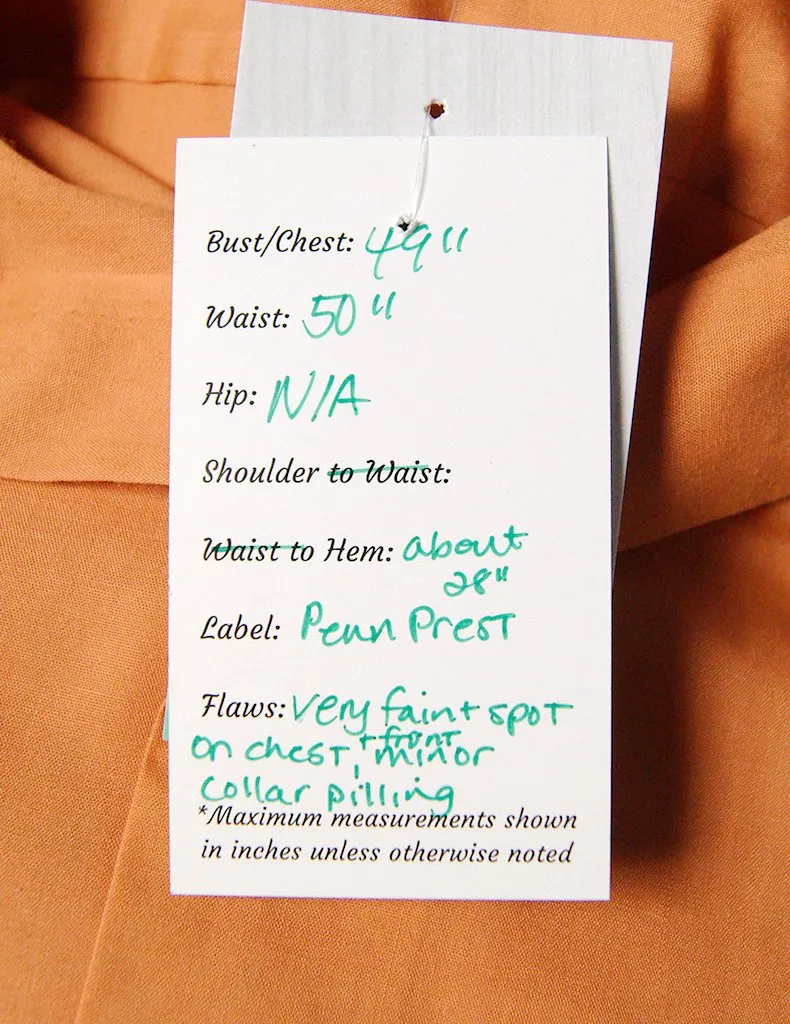 Bust/Chest: 49"
Waist: 50"
Hip: N/A
Shoulder to Waist:
Waist to Hem: about
28"
Label: Penn Prest
Flaws: very faint spot
+ front
on chest, minor
collar pilling
*Maximum measurements shown
in inches unless otherwise noted